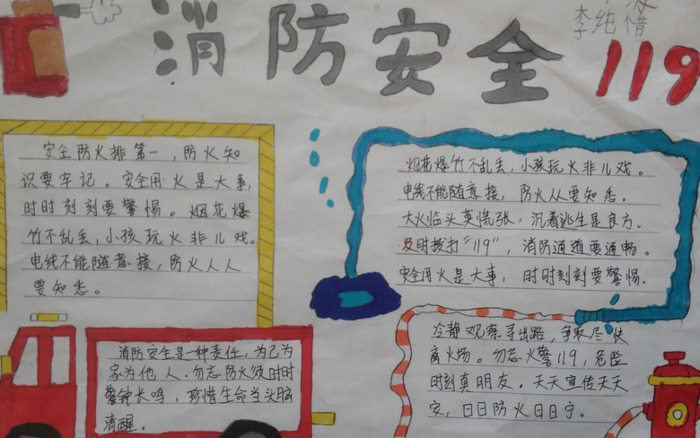 消防安全
李纯惜
119
安全防火排第一，防火知
识要牢记。安全用火是大事，
时时刻刻要警惕。烟花爆
竹不乱丢，小孩玩火非儿戏。
电线不能随意接，防火人人
要知悉。
烟花爆竹不乱丢，小孩玩火非儿戏。
电线不能随意接，防火从要知悉。
大火临头莫慌张，沉着逃生是良方。
及时拨打“119”，消防通道要通畅。
安全用火是大事，时时刻刻要警惕。
消防安全是一种责任，为己为
家为他人。勿忘防火须时时
警钟长鸣，珍惜生命当头脑
清醒。
冷静观察寻出路，争取尽快
离火场。勿忘火警119，危险
时刻真朋友。天天宣传天天
安，日日防火日日宁。